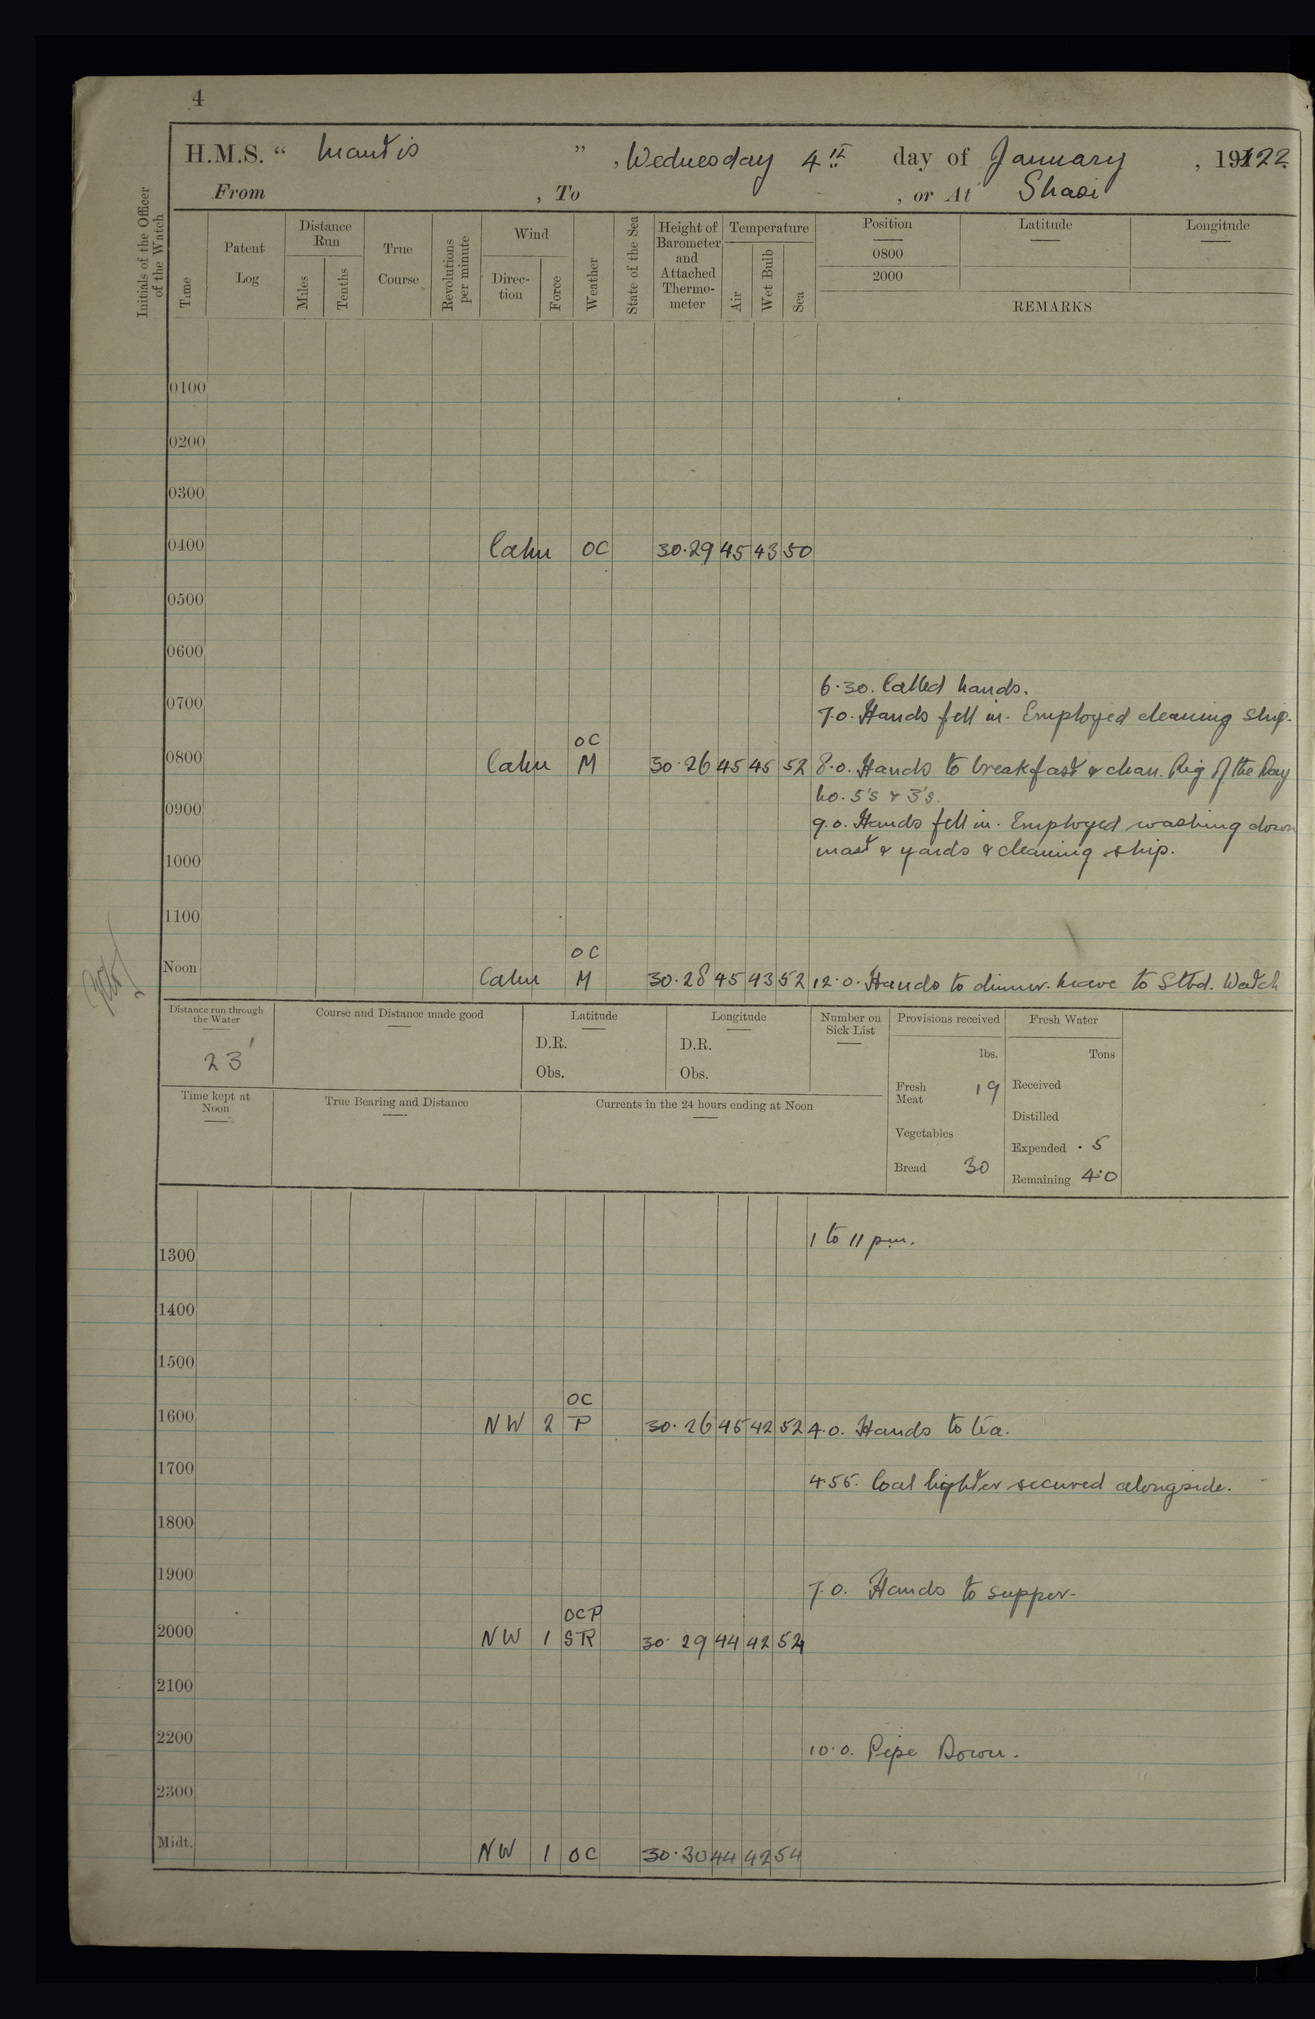 4
H.M.S. “ Mantis ” , Wednesday 4th day of January , 1922
From , To , or At Shasi
Initials of the Officer of the Watch
Time
Patent Log
Distance Run
Miles
Tenths
True Course
Revolutions per minute
Wind
Direc-tion
Force
Weather
State of the Sea
Height of Barometer and Attached Thermo-meter
Temperature
Air
Wet Bulb
Sea
Position
0800
2000
Latitude
Longitude
REMARKS
0100
0200
0300
0400 Calm OC 30.29 45 43 50
0500
0600
6.30. Called hands.
0700
7.0. Hands fell in. Employed cleaning ship.
OC
0800 Calm M 30.26 45 45 52 8.0. Hands to breakfast & clean. Rig of the Day
No. 5's & 3's.
0900
9.0. Hands fell in. Employed washing down
mast & yards & cleaning ship.
1000
1100
OC
Noon Calm M 30.28 45 43 52 12.0. Hands to dinner. Leave to Stbd. Watch
Distance run through the Water
23'
Course and Distance made good
Latitude
D.R.
Obs.
Longitude
D.R.
Obs.
Number on Sick List
Provisions received
lbs.
Fresh Meat 19
Vegetables
Bread 30
Fresh Water
Tons
Received
Distilled
Expended .5
Remaining 4.0
Time kept at Noon
True Bearing and Distance
Currents in the 24 hours ending at Noon
1 to 11 pm.
1300
1400
1500
OC
1600 NW 2 P 30.26 45 42 52 4.0. Hands to tea.
1700
4.55. Coal lighter secured alongside.
1800
1900
7.0. Hands to supper.
OCP
2000 NW 1 SR 30.29 44 42 52
2100
2200
10.0. Pipe Down.
2300
Midt. NW 1 OC 30.30 44 42 54